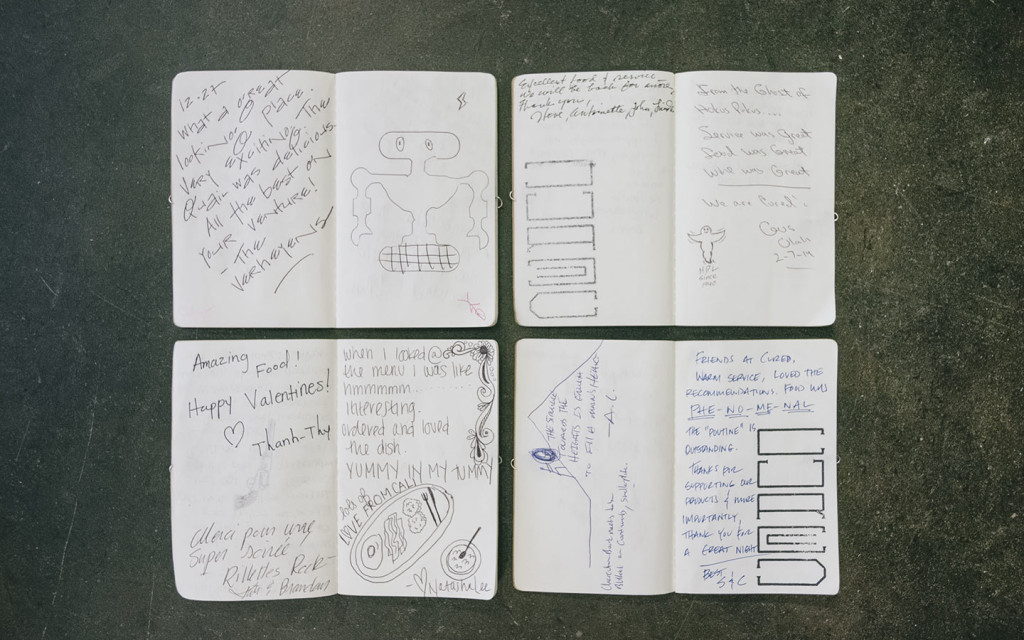 12-27
What a great
looking place.
Very exciting. The
Quail was delicious.
All the best on
your venture!
- The
Verheyens
Excellent food & service -
We will be back for more,
Thank you,
Steve, Antoinette, John,
From the Ghost of
Holus Polus....
Service was Great
Food was Great
Wine was Great
We are Cured!
Gus
2-7-14
CURED
Amazing
Food!
Happy Valentines!
Thanh-Thy
Merci pour une
Super Soirée
Rillettes Rock
& Brandon
when I looked @
the menu I was like
hmmmmm........
Interesting.
ordered and loved
the dish.
YUMMY IN MY TUMMY
lots of
LOVE FROM CALI!
Natasha Lee
THE STRUGGLE
TOWARDS THE
HEIGHTS IS ENOUGH
TO FILL A MAN'S HEART
- A.C.
FRIENDS AT CURED,
WARM SERVICE, LOVED THE
RECOMMENDATIONS. FOOD WAS
PHE-NO-ME-NAL
THE "POUTINE" IS
OUTSTANDING.
THANKS FOR
SUPPORTING OUR
PRODUCTS & MORE
IMPORTANTLY,
THANK YOU FOR
A GREAT NIGHT
BEST,
S & C
CURED